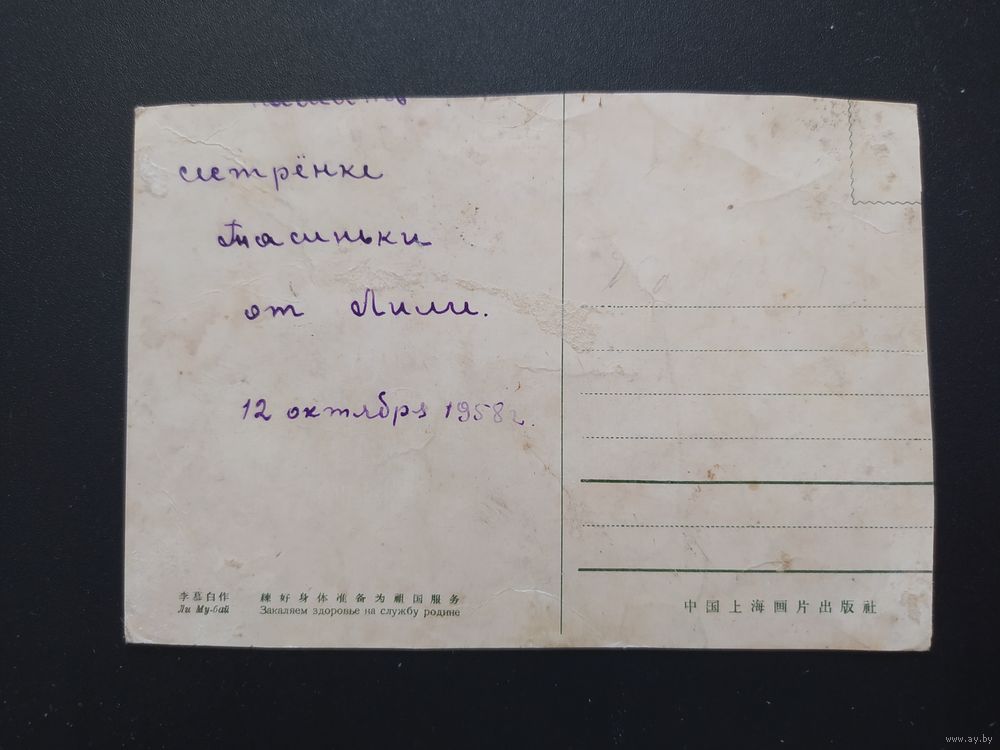 память
сестрёнке
Тасиньки
от Лили.
12 октября 1958 г.
李慕白作
Ли Му-бай
練好身体准备为祖国服务
Закаляем здоровье на службу родине
中国上海画片出版社
www.ay.by